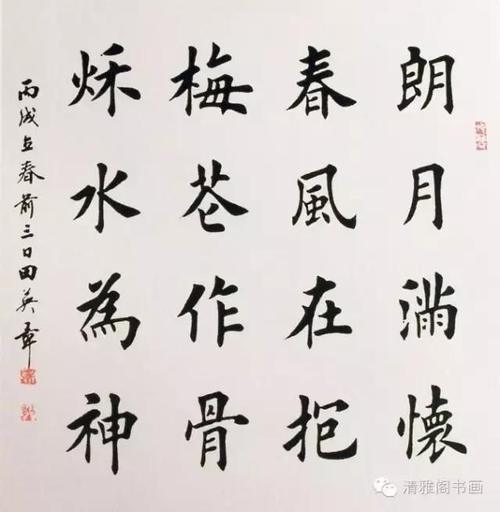 朗月滿懷
春風在抱
梅花作骨
秌水為神
丙戌立春前三日田英章
清雅阁书画